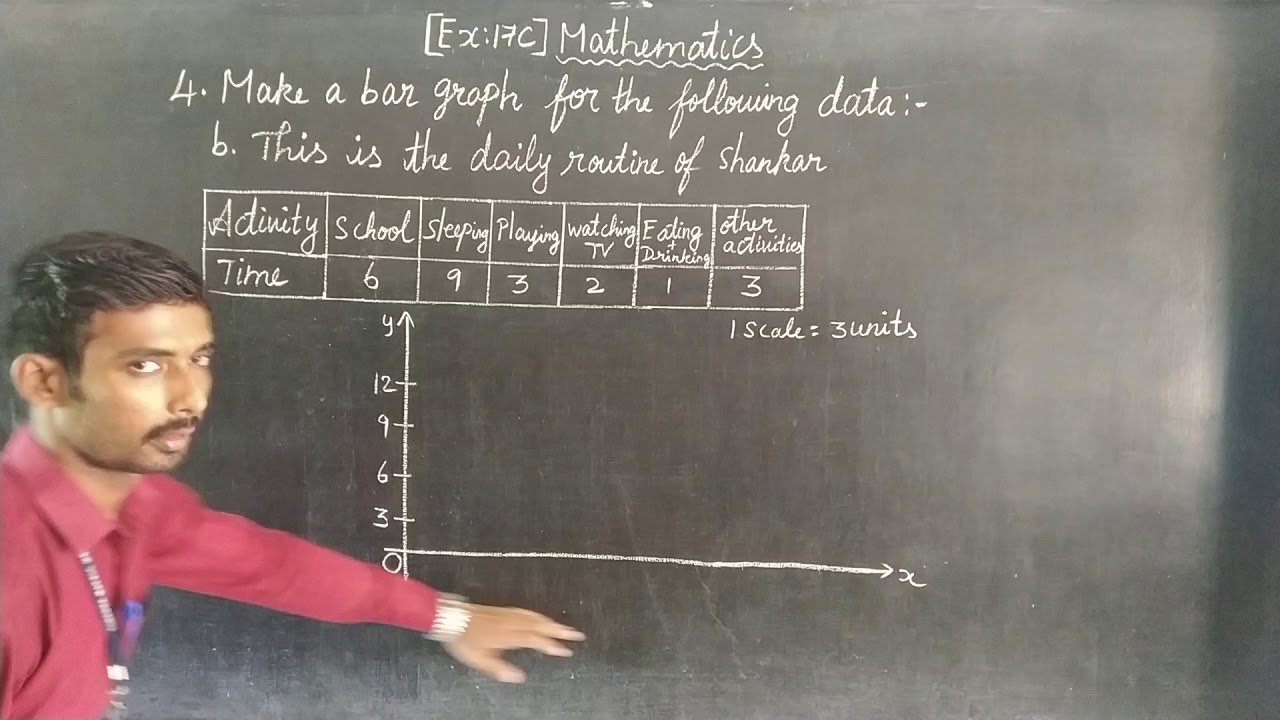 [Ex:17C] Mathematics
4. Make a bar graph for the following data:-
b. This is the daily routine of Shankar
Activity School Sleeping Playing watching TV Eating + Drinking other activities
Time 6 9 3 2 1 3
1 scale = 3 units
y
12
9
6
3
0
x